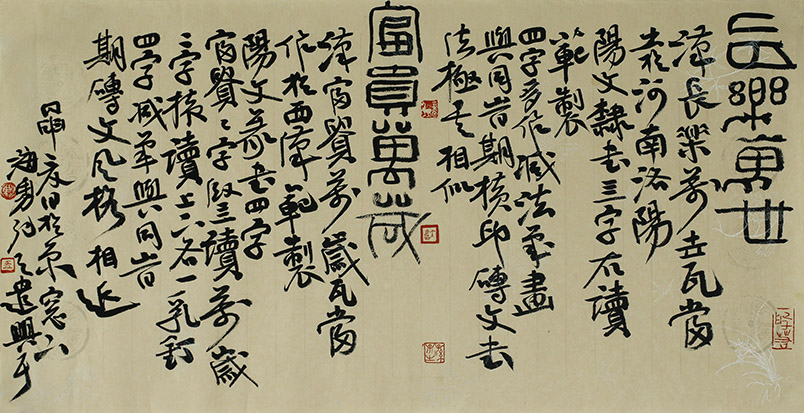 長樂萬世
漢長樂萬世瓦當
河南洛陽
陽文隸書三字右讀
範製
四字多作減法筆畫
與同時期橫印磚文書
法極其相似
富貴萬歲
漢富貴萬歲瓦當
作於西漢範製
陽文篆書四字
富貴二字豎讀萬歲
二字橫讀上下各一乳釘
四字減筆與同時
期磚文風格相近
日於京窗下
海勇 遣興耳